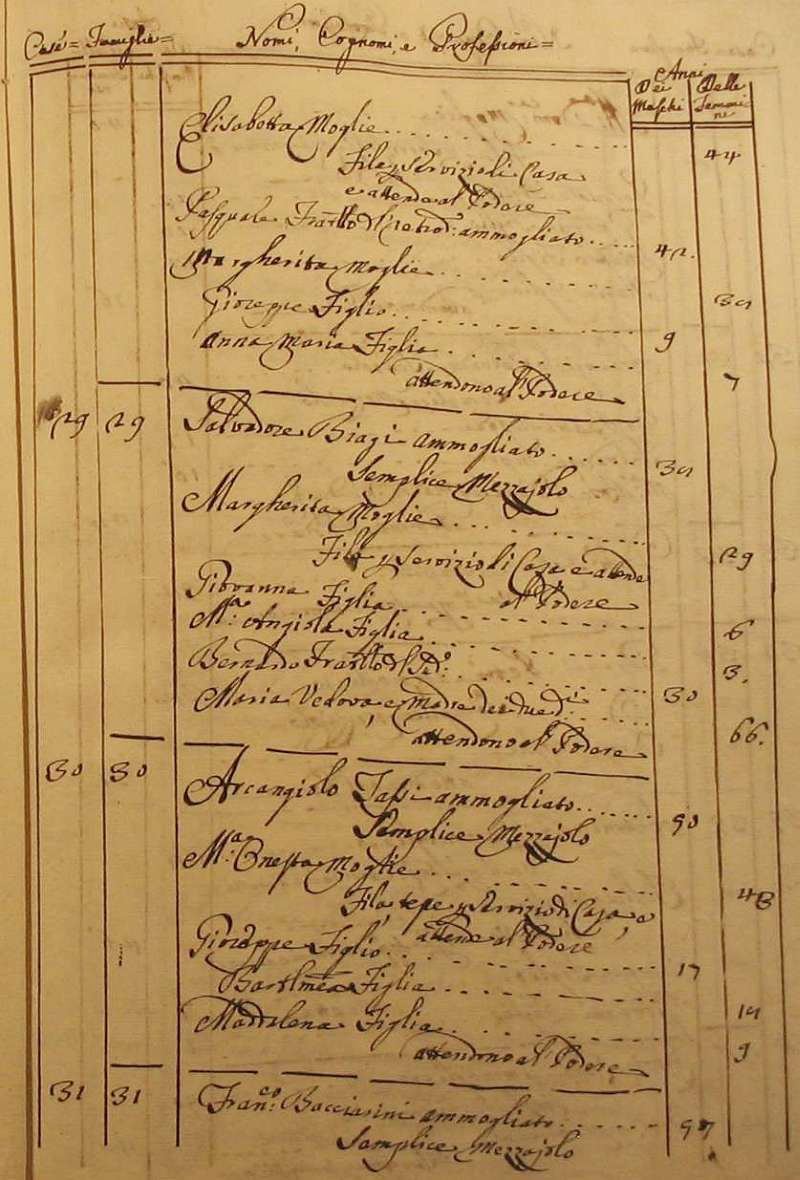 Case= Famiglie= Nomi, Cognomi, e Professioni=
Anni
Dei Maschi Delle Femmine
Elisabetta Moglie 44
Fila p servizio di Casa
e attende al Podere
Pasquale Fratello ammogliato 42
Margherita Moglie 39
Gioseppe Figlio 9
Anna Maria Figlia 7
attendono al Podere
29 29 Salvadore Biagi ammogliato 39
Semplice Mezzajolo
Margherita Moglie 29
Fila p servizio di Casa e attende
al Podere
Giovanna Figlia 6
M.a Angiola Figlia 3.
Bernardo Fratello 30
Maria Vedova, e Madre dei due di 66.
attendono al Podere
30 30 Arcangiolo Tassi ammogliato 50
Semplice Mezzajolo
M.a Onesta Moglie 48
Fila, tesse p servizio di Casa, e
attende al Podere
Gioseppe Figlio 17
Bartlmea Figlia 14
Maddalena Figlia 9
attendono al Podere
31 31 Fran.co Bacciarini ammogliato 57
Semplice Mezzajolo